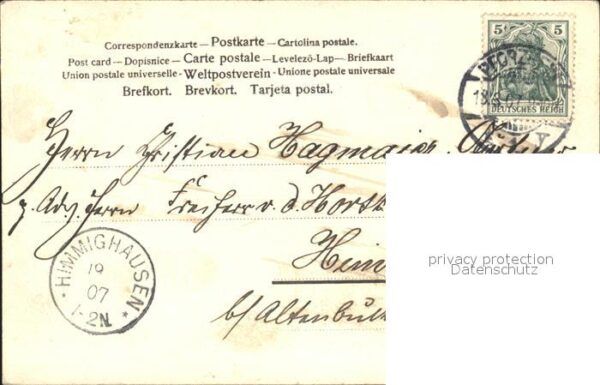 Correspondenzkarte — Postkarte — Cartolina postale.
Post card — Dopisnice — Carte postale — Levelező-Lap — Briefkaart
Union postale universelle - Weltpostverein - Unione postale universale
Brefkort. Brevkort. Tarjeta postal.
5 5
DEUTSCHES REICH
Herrn Christian Hagmaier,
z. Adr. Herrn Freiherr v. d. Horst
HIMMIGHAUSEN
19
07
1-2N.
b/ Altenb
privacy protection
Datenschutz